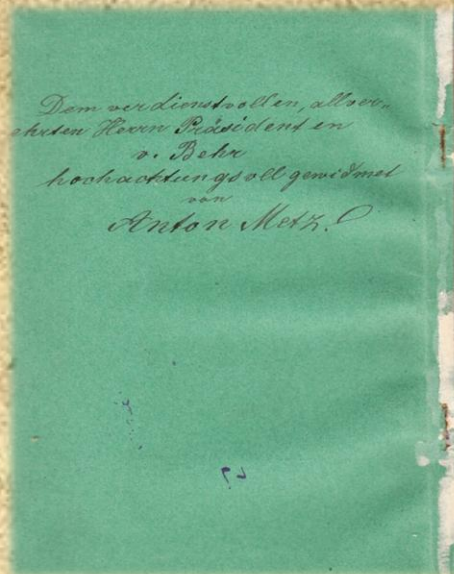 Dem verdienstvollen, allver-
ehrten Herrn Präsidenten
v. Behr
hochachtungsvoll gewidmet
von
Anton Metz.